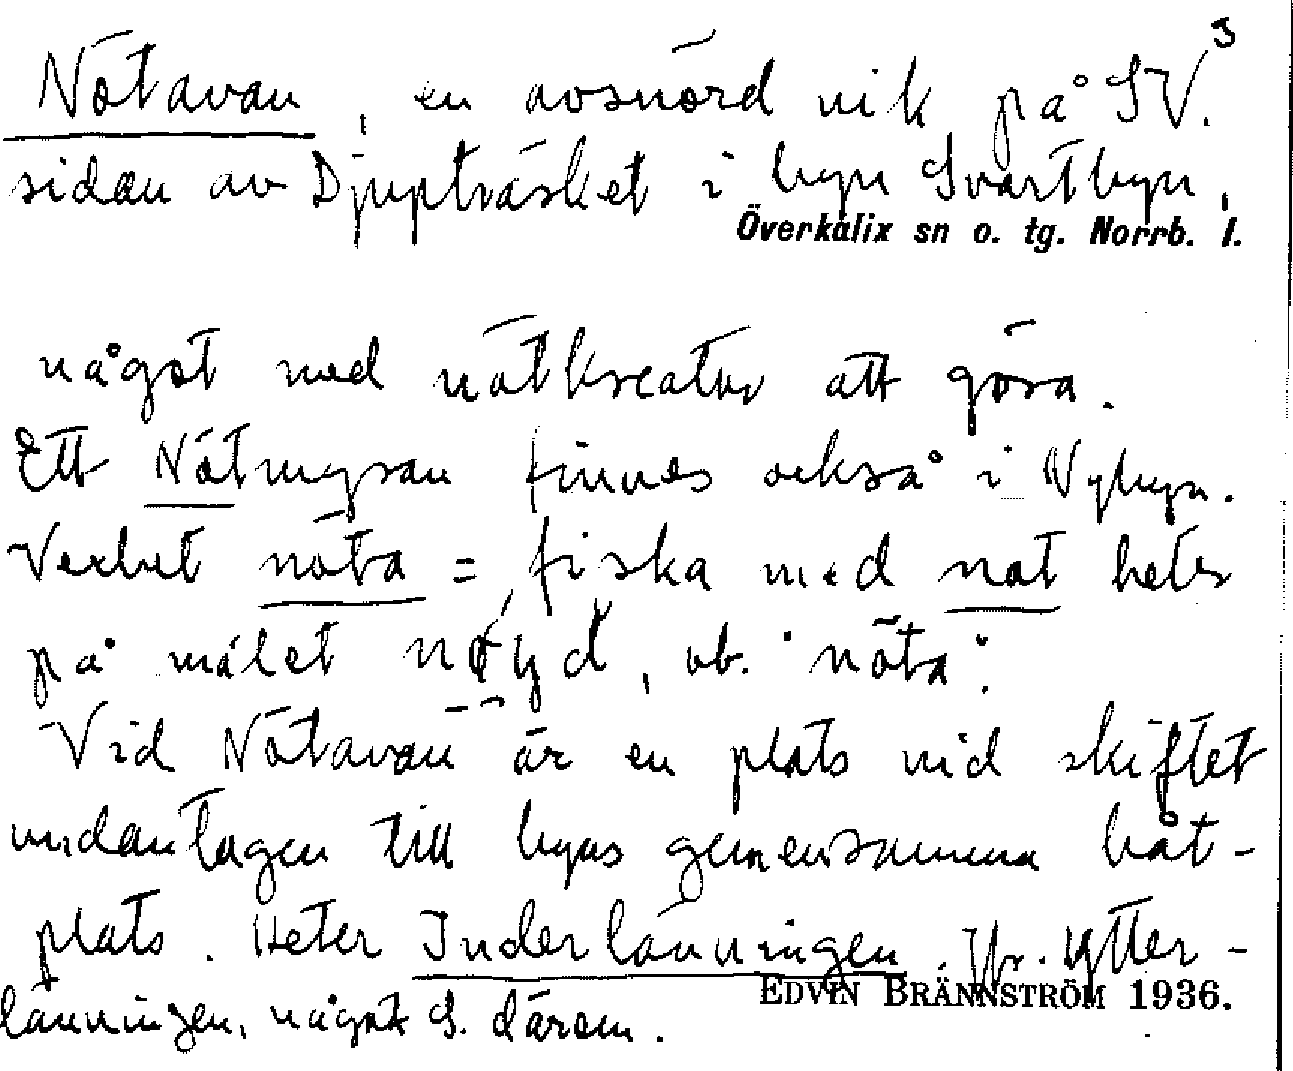 3
Nötavan, en avsnörd vik på SV.
sidan av Djupträsket i byn Svartbyn,
Överkalix sn o. tg. Norrb. l.
något med nötkreatur att göra.
Ett Nötmyran finnes också i Nybyn.
Verbet nöta = fiska med not heter
på målet nöyd, vb. "nöta".
Vid Nötavan är en plats vid skiftet
undantagen till byns gemensamma båt-
plats. Heter Inderlänningen. Jfr. Ytter-
EDVIN BRÄNNSTRÖM 1936.
länningen, något S. därom.